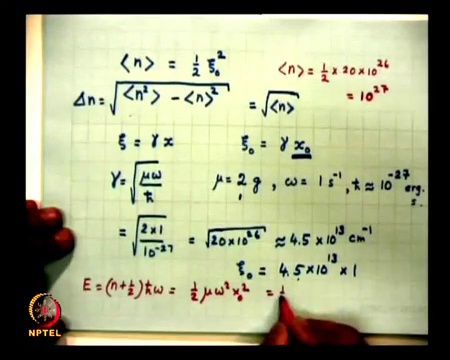 <n> = ½ ξ₀²
<n> = ½ × 20 × 10²⁶
Δn = √(<n²> − <n>²) = √<n>
= 10²⁷
ξ = γ x    ξ₀ = γ x₀
γ = √(μω/ħ)    μ = 2 g , ω = 1 s⁻¹, ħ ≈ 10⁻²⁷ erg. s.
= √((2 × 1)/10⁻²⁷) = √(20 × 10²⁶) ≈ 4.5 × 10¹³ cm⁻¹
ξ₀ = 4.5 × 10¹³ × 1
E = (n + ½) ħω = ½ μ ω² x₀² = ½
NPTEL